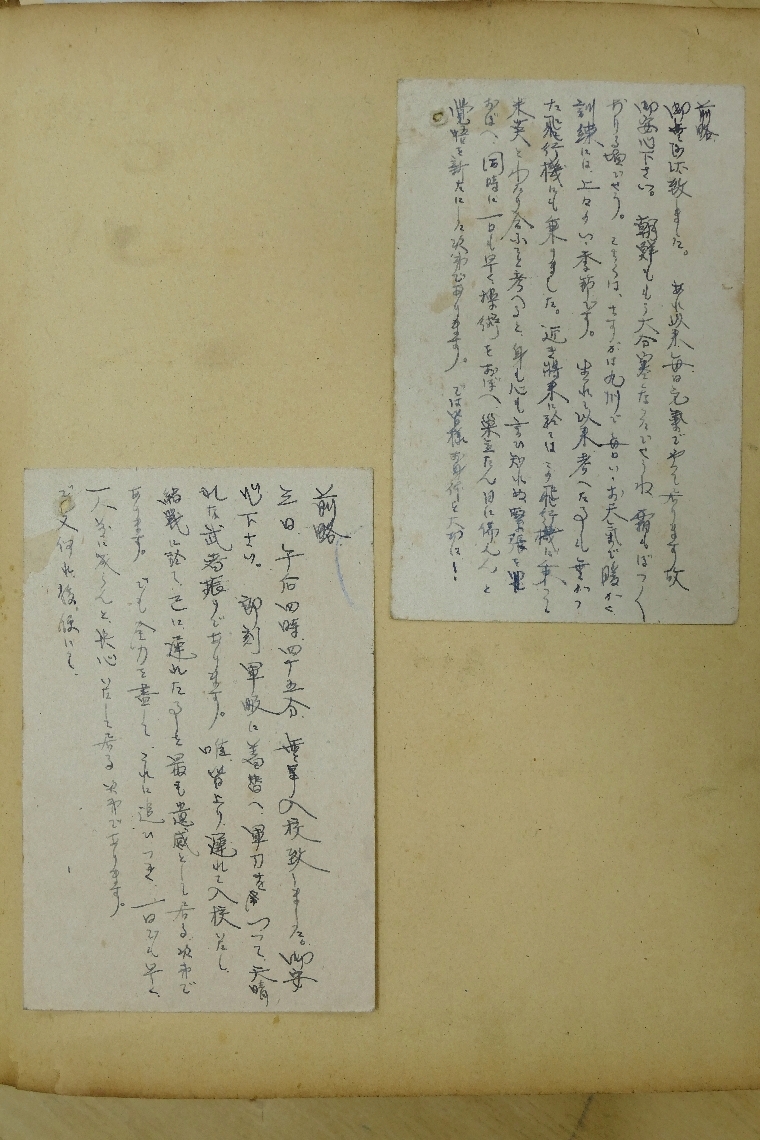 前略
御無沙汰致しました。あれ以来毎日元氣でやって居ります故
御安心下さい。朝鮮ももう大分寒くなったでせうね 霜もぼつ〱
おりる頃でせう。こちらは、さすがは九州で毎日いゝお天氣で暖かく
訓練には上々のいゝ季節です。生れて以来考へたる事も無かつ
た飛行機にも乗りました。近き將来に於てはこの飛行機に乗って
米英とわたり合ふことを考へると、身も心も言ひ知れぬ緊張を覺
おぼへ、同時に一日も早く操術をおぼへ巣立たん日に備へんと
覚悟を新たにした次第であります。では皆様お身体を大切に!
前略
三日、午后四時四十五分、無事入校致しました。御安
心下さい。即刻軍服に着替へ、軍刀を つつて、天晴
れな武者振りであります。唯、皆より遅れて入校致し
結戦に於て已に遅れたる事を最も遺憾として居る次第で
あります。でも全力を盡して、これに追ひつき、一日でも早く
一人前に成らんと決心致して居る次第であります。
で又何れ後便にて、